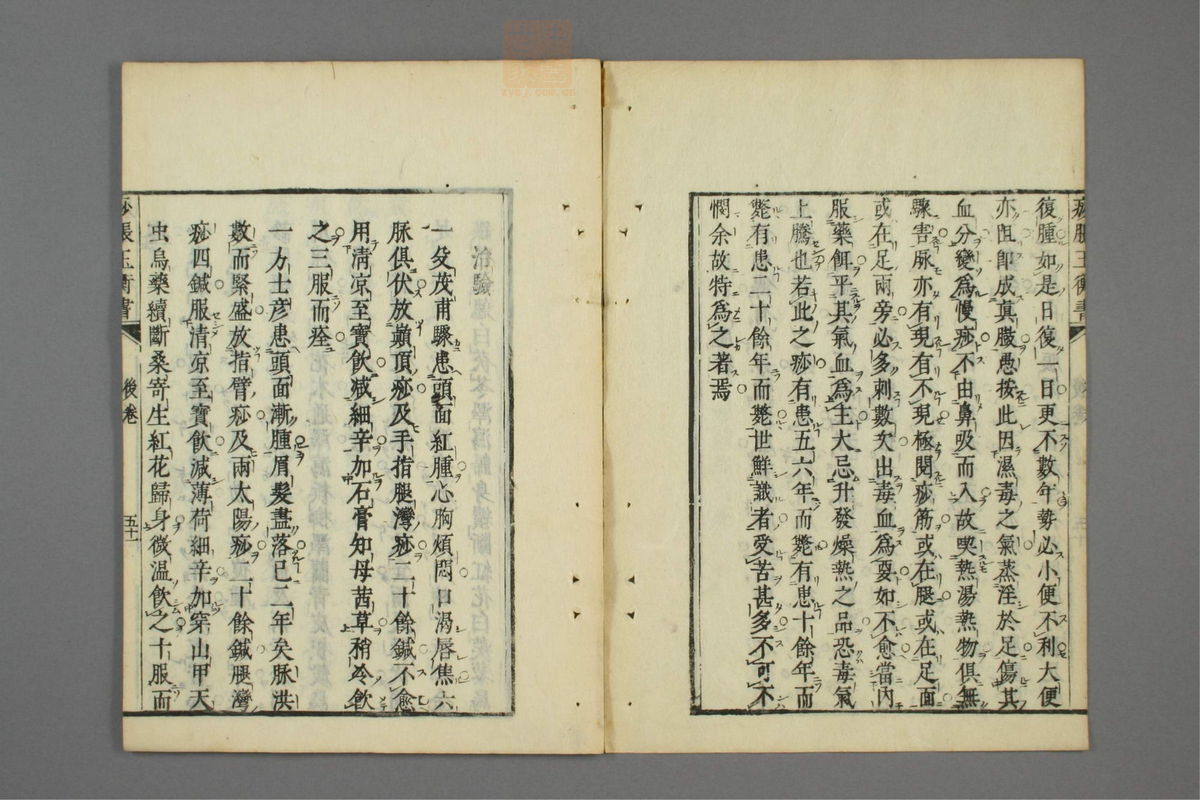 痧脹玉衡書
復腫如是日復一日更不數年勢必小便不利大便
亦囬即成真臌愚按此因濕毒之氣蒸淫於足傷其
血分變爲慢痧不由鼻吸而入故喫熱湯熱物俱無
驟害脉亦有現有不現極閱痧筋或在腿或在足面
或在足兩旁必多刺數次出毒血爲要如不愈當內
服藥餌平其氣血爲主大忌升發燥熱之品恐毒氣
上騰也若此之痧有患五六年而斃有患十餘年而
斃有患二十餘年而斃世鮮識者受苦甚多不可不
憫余故特爲之著焉
一殳茂甫驟患頭面紅腫心胸煩悶口渴唇焦六
脉俱伏放巔頂痧及手指腿灣痧二十餘鍼不愈
用清凉至寶飲减細辛加石膏知母茜草稍冷飲
之三服而痊
一方士彥患頭面漸腫眉髮盡落已二年矣脉洪
數而緊盛放指臂痧及兩太陽痧二十餘鍼腿灣
痧四鍼服清凉至寶飲減薄荷細辛加穿山甲天
虫烏藥續斷桑寄生紅花歸身微温飲之十服而
痧脹玉衡書 後卷 五十一